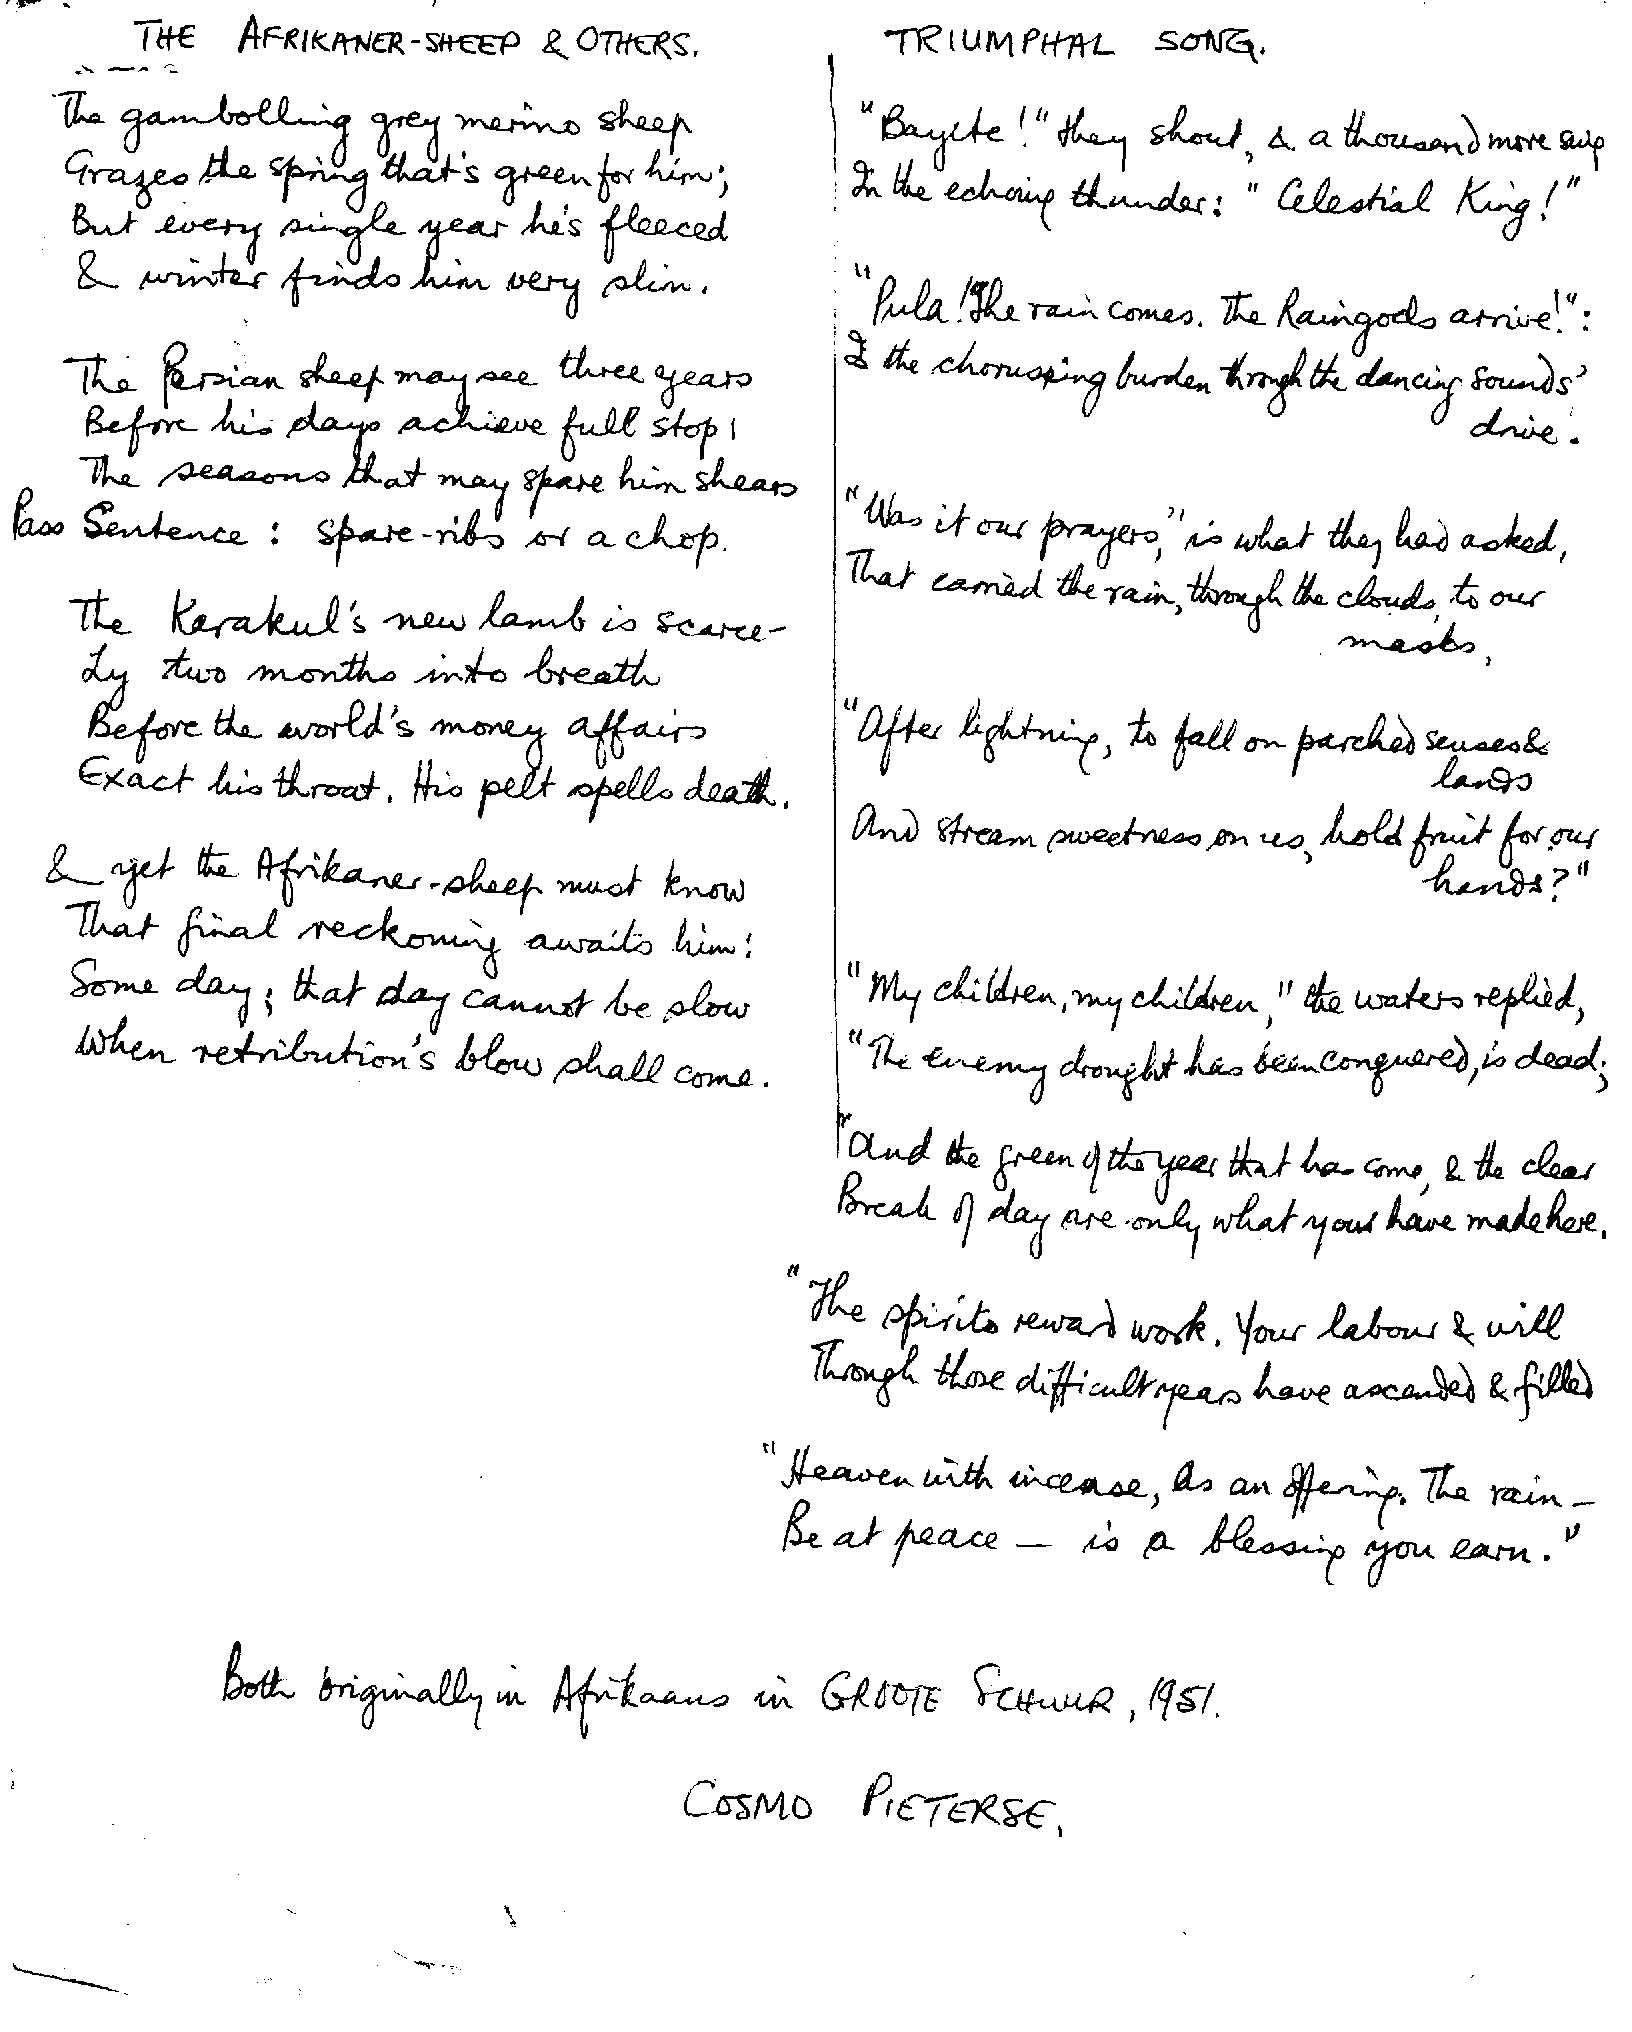 THE AFRIKANER-SHEEP & OTHERS.
The gambolling grey merino sheep
Grazes the spring that's green for him;
But every single year he's fleeced
& winter finds him very slim.
The Persian sheep may see three years
Before his days achieve full stop;
The seasons that may spare him shears
Pass Sentence: spare-ribs or a chop.
The Karakul's new lamb is scarce-
Ly two months into breath
Before the world's money affairs
Exact his throat. His pelt spells death.
& yet the Afrikaner-sheep must know
That final reckoning awaits him:
Some day; that day cannot be slow
When retribution's blow shall come.
TRIUMPHAL SONG.
"Bayete!" they shout, & a thousand more sing
In the echoing thunder: "Celestial King!"
"Pula! The rain comes. The Raingods arrive!":
Is the chorusing burden through the dancing sounds'
drive.
"Was it our prayers," is what they had asked,
That carried the rain, through the clouds, to our
masks,
"After lightning, to fall on parched senses &
lands
And stream sweetness on us, hold fruit for our
hands?"
"My children, my children," the waters replied,
"The enemy drought has been conquered, is dead;
"And the green of the year that has come, & the clear
Break of day are only what yours have made here.
"The spirits reward work. Your labour & will
Through those difficult years have ascended & filled
"Heaven with incense, As an offering. The rain —
Be at peace — is a blessing you earn."
Both originally in Afrikaans in GROOTE SCHUUR, 1951.
COSMO PIETERSE.